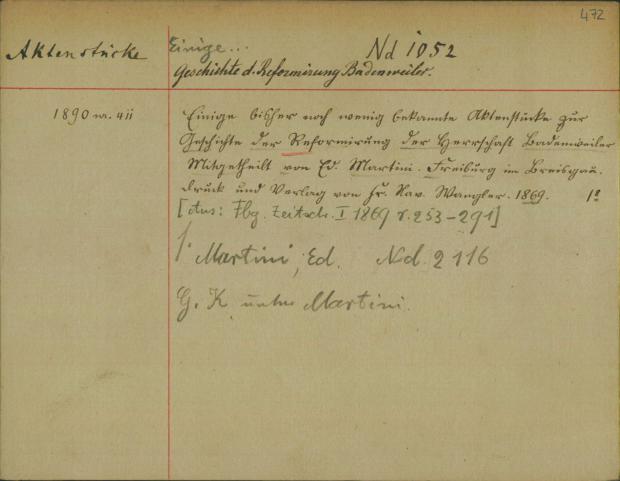 472
Aktenstücke Einige... Nd 1052
Geschichte d. Reformirung Badenweiler.
1890 nr. 411 Einige bisher noch wenig bekannte Aktenstücke zur
Geschichte der Reformirung der Herrschaft Badenweiler
Mitgetheilt von Ed. Martini. Freiburg im Breisgau.
Druck und Verlag von Fr. Xav. Wangler. 1869. 1º
[Aus: Fbg. Zeitsch. I 1869 S. 253-291]
f. Martini, Ed. Nd. 2116
G. K. unter Martini.